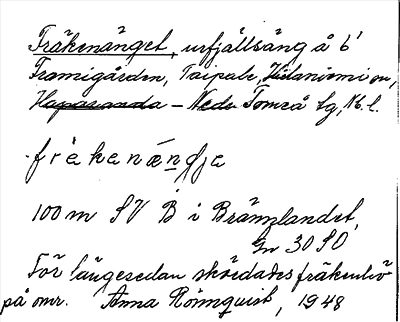 Fräkenänget, urfjällsäng å 6¹
Framigården, Vaipale, Hietaniemi sn,
Haparanda – Nedr Torneå tg, Nb. l.
fräkenæn̦dja
100 m SV B i Brännlandet,
Gn 30 SO
För längesedan skördades fräkenhö
på omr. Anna Rönnquist, 1948